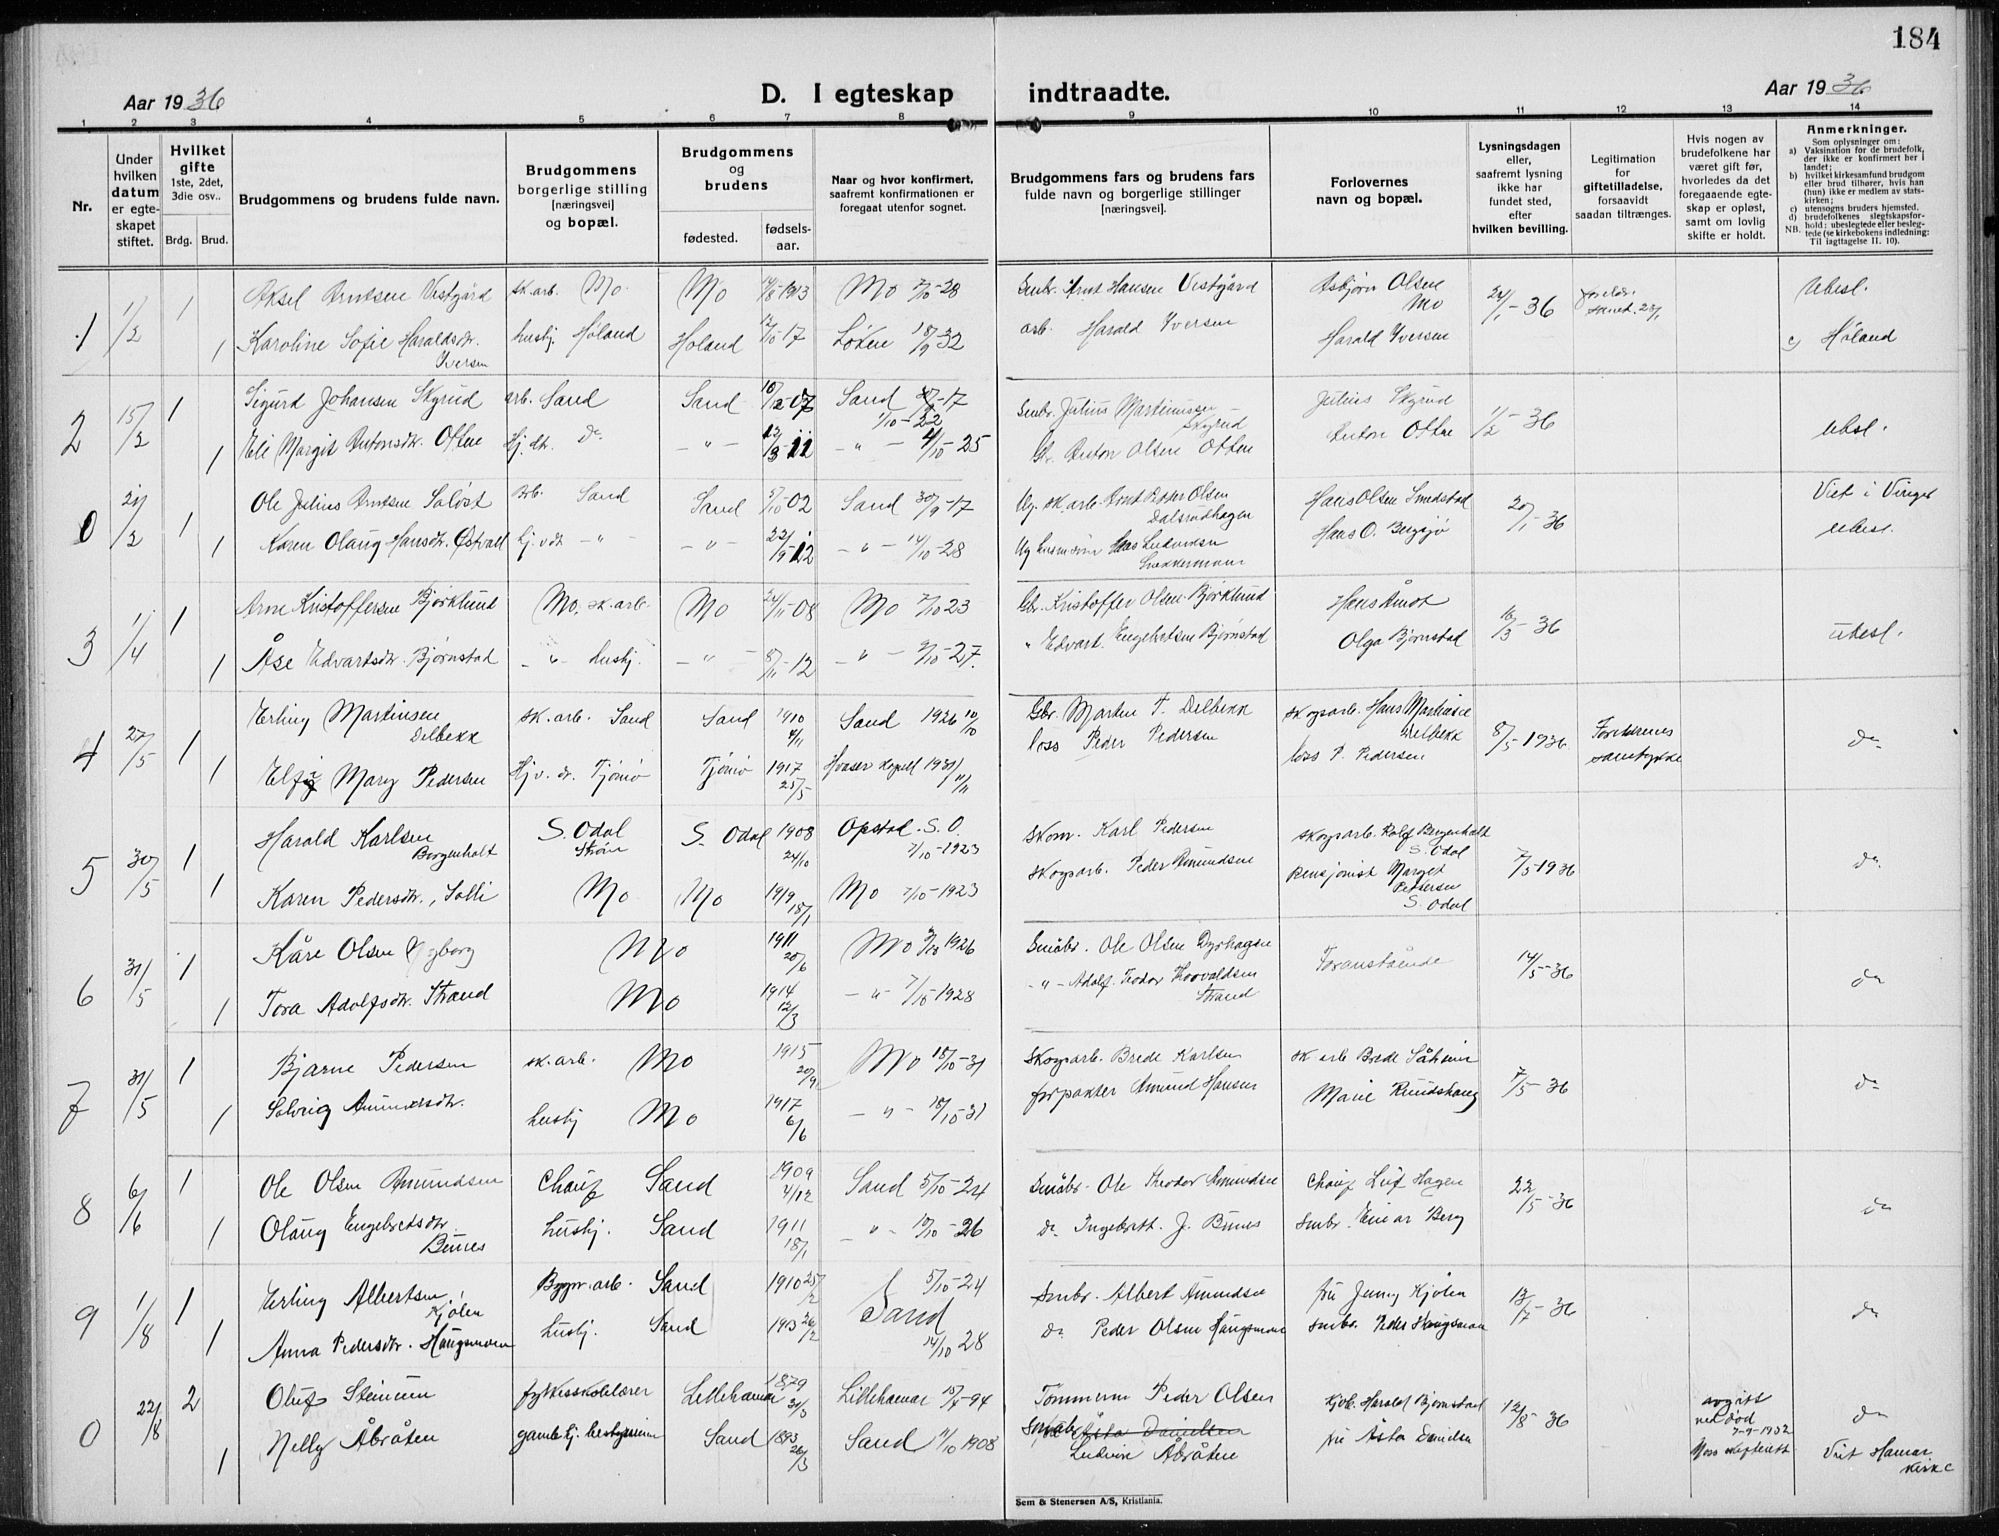 184
Aar 1936
D. I egteskap indtraadte.
Aar 1936
1 2 3 4 5 6 7 8 9 10 11 12 13 14
Nr.
Under hvilken datum er egteskapet stiftet.
Hvilket gifte 1ste, 2det, 3die osv..
Brdg. Brud.
Brudgommens og brudens fulde navn.
Brudgommens borgerlige stilling [næringsvei] og bopæl.
Brudgommens og brudens
fødested.
fødsels-aar.
Naar og hvor konfirmert, saafremt konfirmationen er foregaat utenfor sognet.
Brudgommens fars og brudens fars fulde navn og borgerlige stillinger [næringsvei].
Forlovernes navn og bopæl.
Lysningsdagen eller, saafremt lysning ikke har fundet sted, efter hvilken bevilling.
Legitimation for giftetilladelse, forsaavidt saadan tiltrænges.
Hvis nogen av brudefolkene har været gift før, hvorledes da det foregaaende egteskap er opløst, samt om lovlig skifte er holdt.
Anmerkninger.
Som oplysninger om:
a) Vaksination for de brudefolk, der ikke er konfirmert her i landet;
b) hvilket kirkesamfund brudgom eller brud tilhører, hvis han (hun) ikke er medlem av statskirken;
c) utensogns bruders hjemsted.
d) brudefolkenes slegtskapsforhold: ubeslegtede eller beslegtede (se kirkebokens indledning: NB. Til iagttagelse II. 10).
1 1/2 1 Aksel Arntsen Vestgård sk.arb. Mo. Mo 1913 Mo 7/10-28 Smbr. Arnt Hansen Vestgård Asbjørn Olsen Mo 24/1-36 Ubesl.
1 Karoline Sofie Haraldsdtr. Iversen hushj. Høland Høland 12/10-17 Løken 18/9 32 arb. Harald Iversen Harald Iversen c) Høland
2 15/2 1 Sigurd Johansen Skyrud arb. Sand Sand 07 Sand 17 Smbr. Julius Martinussen Skyrud Julius Skyrud 1/2-36 ubsl.
1/10-22
1 Eli Margit Antonsdtr. Often Hj. dtr. do - " - 12/3 11 - " - 4/10-25 Gbr. Anton Olsen Often Anton Often
0 21/2 1 Ole Julius Arntsen Saløst Arb. Sand Sand 5/10-02 Sand 30/9-17 Ug. sk.arb. Arnt Olsen Dalsrudhagen Hans Olsen Smedstad 20/1-36 Viet i Vinger
1 Karen Olaug Hansdtr. Østvall hj.v.dt - " - - " - 22/9-12 - " - 14/10-28 Ug husmann Hans Ludvigsen Snekkermoen Hans O. Bergsjø ubesl.
3 1/4 1 Arne Kristoffersen Bjørklund Mo. sk.arb. Mo 24/11-08 Mo 7/10 23 Gbr. Kristoffer Olsen Bjørklund Hans Amot 16/3-36 ubesl.
1 Åse Edvartsdtr. Bjørnstad - " - hushj. - " - 8/11-12 - " - 9/10-27. " Edvart Engebretsen Bjørnstad Olga Bjørnstad
4 27/5 1 Erling Martinsen Delbekk sk.arb. Sand Sand 1910 4/11 Sand 1926 10/10 Gbr. Martin T. Delbekk skogsarb. Hans Martinsen Delbekk 8/5-1936 Foreldrenes samtykke do
1 Mary Pedersen Hj.v. dt. Tjømø Tjømø 1917 25/5 Hvaser kapell 1931 1/11 loss Peder Pedersen loss P. Pedersen
5 30/5 1 Harald Karlsen Borgenholt S. Odal Strøm S. Odal 1908 24/10 Opstad. S. O. 7/10-1923 Skom. Karl Pedersen skogsarb. Rolf Borgenholt S. Odal 7/5-1936 do
1 Karen Pedersdtr., Solli Mo Mo 1919 18/1 Mo 7/10-1923 skogsarb. Peder Amundsen Pensjonist Margit Pettersen S. Odal
6 31/5 1 Kåre Olsen Mo 1911 20/6 Mo 3/10 1926 Småbr. Ole Olsen Dyrhagen Foranstående 14/5-36 do
1 Tora Adolfsdtr. Strand Mo 1914 12/3 - " - 7/10-1928 - " - Adolf Teodor Thorvaldsen Strand
7 31/5 1 Bjarne Pedersen sk.arb. Mo 1915 20/9 Mo 18/10-31 Skogsarb. Brede Karlsen sk arb Brede Såheim 7/5-36 do
1 Solveig Amundsdtr. hushj Mo 1917 6/6 - " - 18/10-31 forpakter Amund Hansen Marie Rundshaug
8 6/6 1 Ole Olsen Amundsen Chauf Sand 1909 4/12 Sand 5/10-24 Småbr. Ole Theodor Amundsen Chauf Leif Hagen 22/5-36 do
1 Olaug Engebretsdtr. Bunes hushj. Sand 1911 18/1 - " - 10/10-26 do Ingebrett. J. Bunes Smbr. Einar Berg
9 1/8 1 Erling Albertsen Kjølen Bygn.arb. Sand 1910 25/2 5/10-24 Smbr. Albert Amundsen fru Jenny Kjølen 13/7-36 do
1 Anna Pedersdtr. Haugsmoen hushj. Sand 1913 26/2 Sand 14/10 28 do Peder Olsen Haugsmoen smbr. Peder Haugsmoen
0 22/8 2 Oluf Steinum fylkesskolelærer Lillehamar 1879 31/3 Lillehamar 94 Tømmerm Peder Olsen Kjvb. Harald Bjørnstad 12/8-36 avgått ved død 7-9-1932 do
1 Nelly Åbråten gamlehj. bestyrerinne Sand 1893 26/3 Sand 1/10 1908 Småbr. Åsta Danielsen Ludvik Åbråten fru Åsta Danielsen Moss skifterett Viet Hamar kirke
Sem & Stenersen A/S, Kristiania.